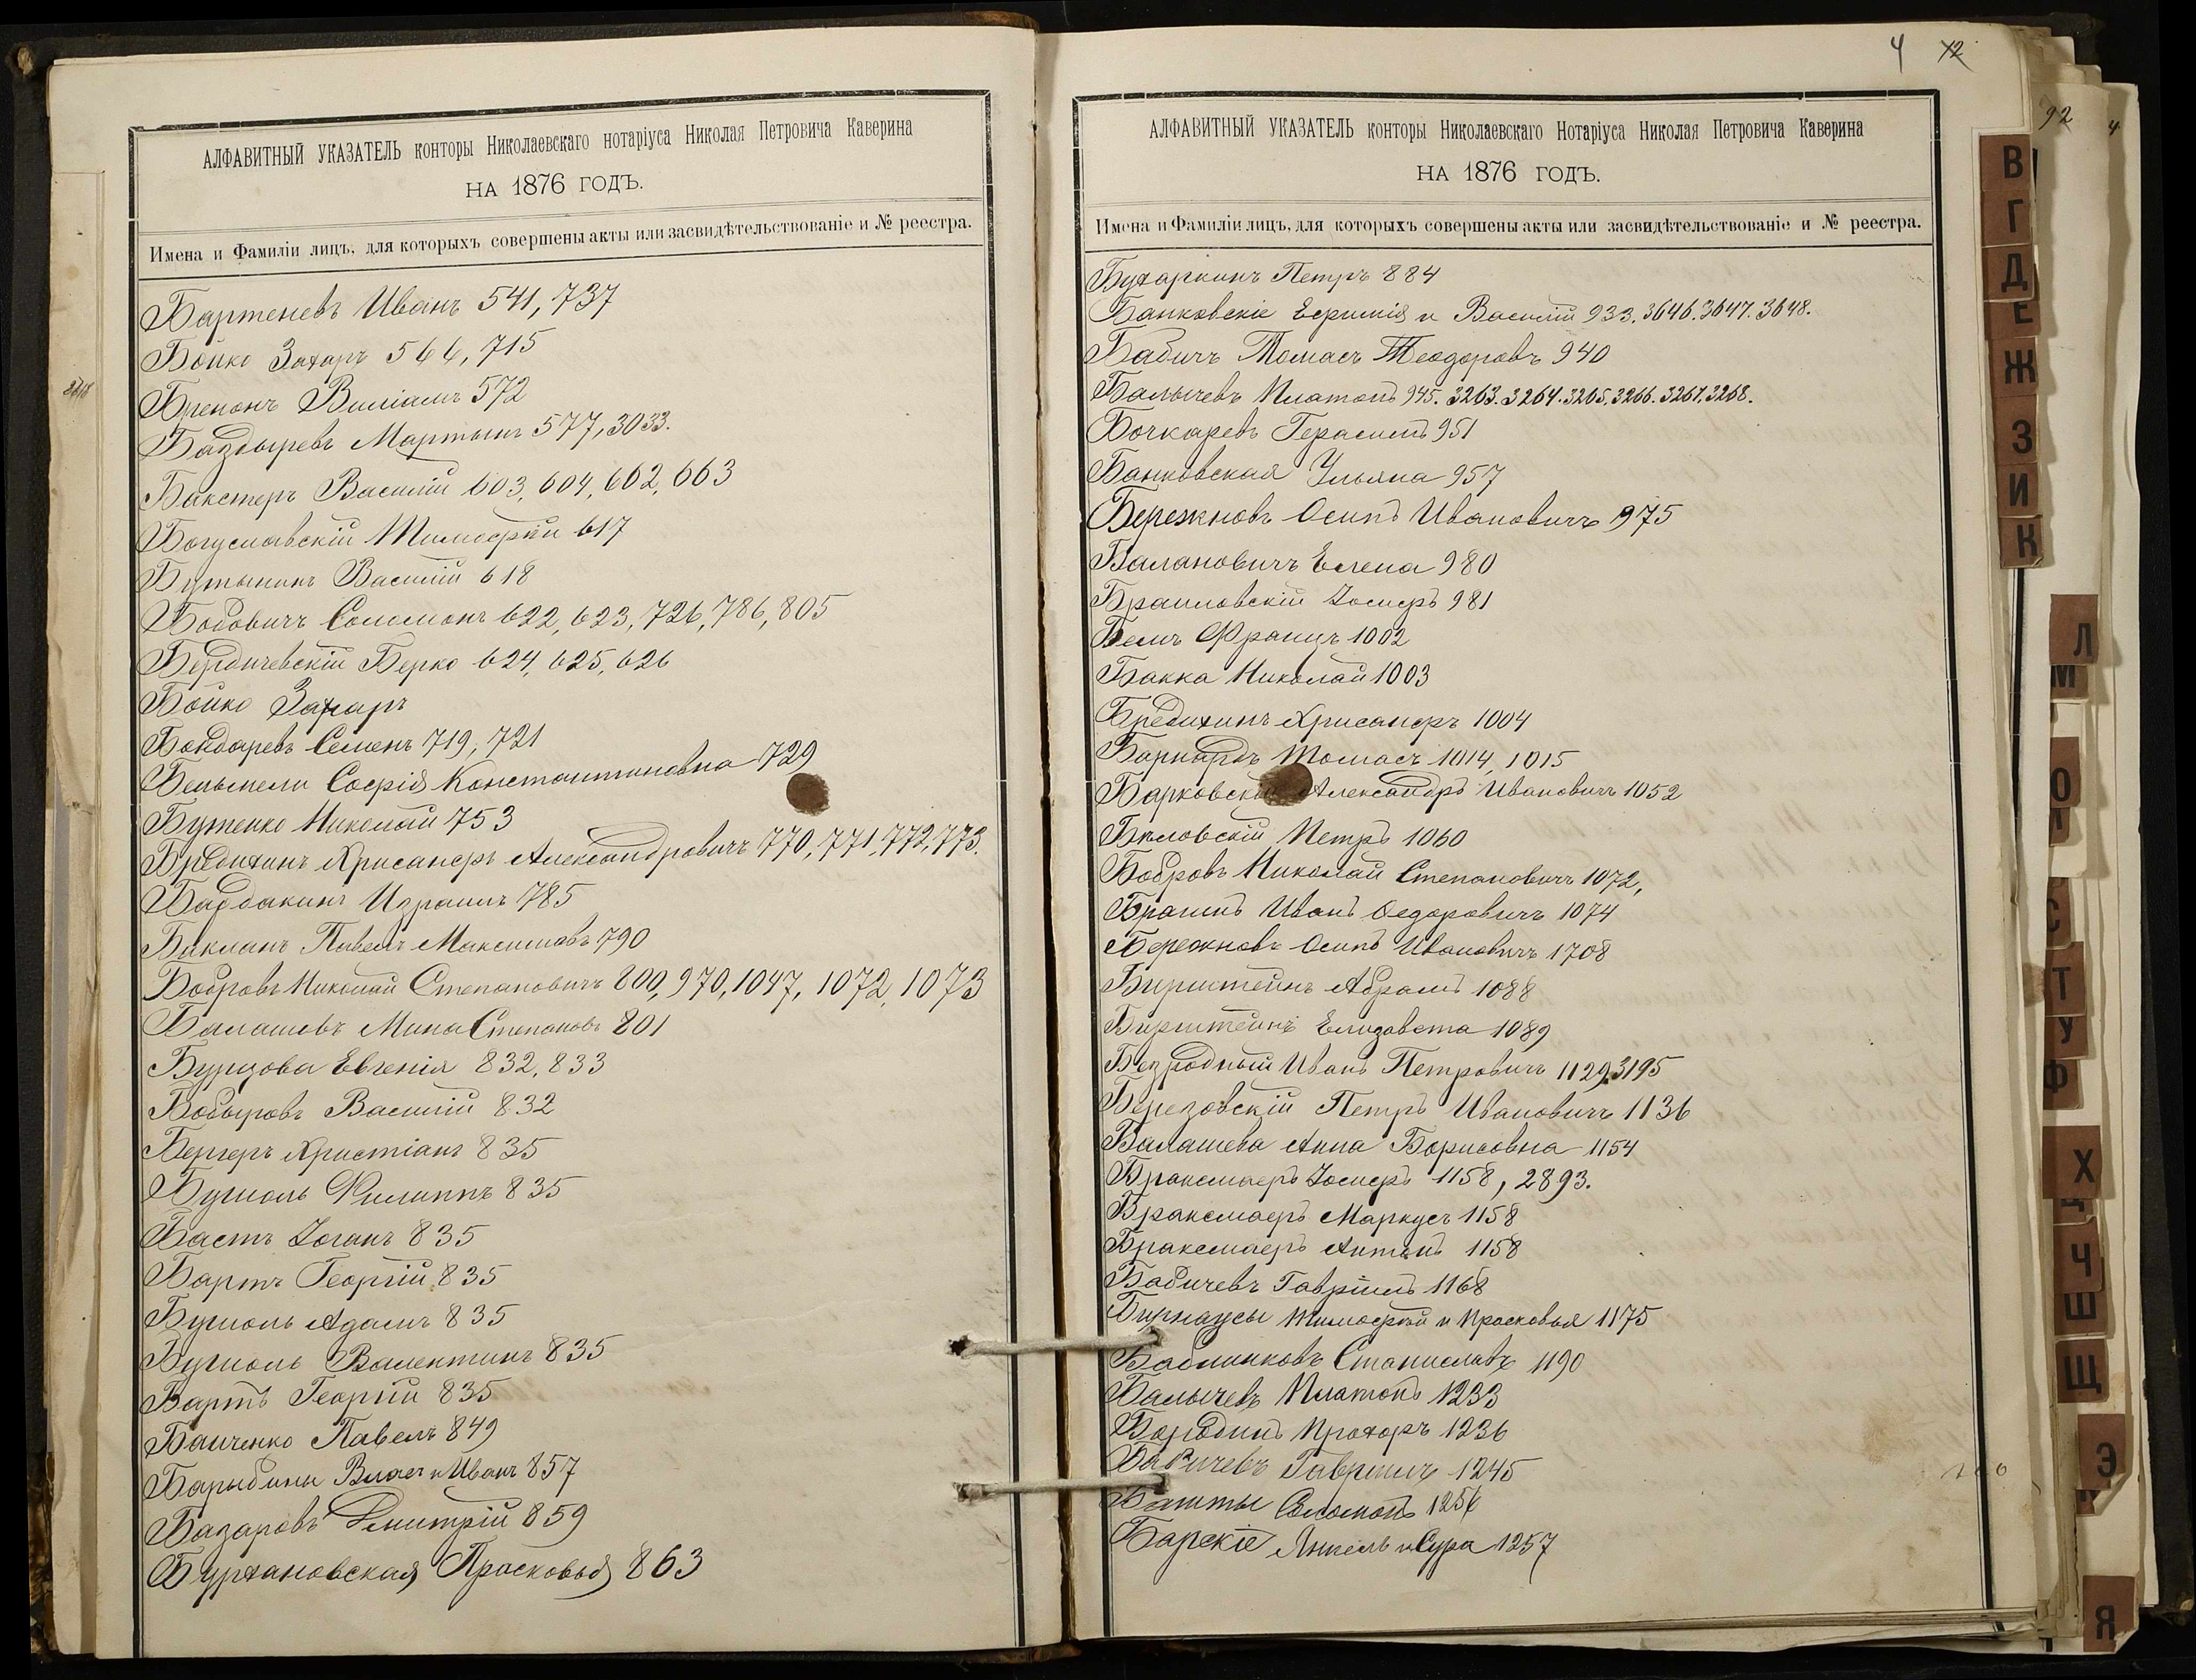 АЛФАВИТНЫЙ УКАЗАТЕЛЬ конторы Николаевскаго нотаріуса Николая Петровича Каверина
НА 1876 ГОДЪ.
Имена и Фамиліи лицъ, для которыхъ совершены акты или засвидѣтельствованіе и № реестра.
Бартеневъ Иванъ 541, 737
Бойко Захаръ 564, 715
Бренонъ Виліамъ 572
Баздыревъ Мартынъ 577, 3033.
Бакстеръ Василій 603, 604, 662, 663
Богуславскій Тимофѣй 617
Бутынинъ Василій 618
Бобовичъ Соломонъ 622, 623, 726, 786, 805
Бердичевскій Берко 624, 625, 626
Бойко Захаръ
Бондаревъ Семенъ 719, 721
Бельмели Софія Константиновна 729
Бутенко Николай 753
Бредихинъ Хрисанфъ Александровичъ 770, 771, 772, 773.
Бабдакинъ Израиль 785
Бикманъ Павелъ Максимовъ 790
Бобровъ Николай Степановичъ 800, 970, 1047, 1072, 1073
Балашевъ Мина Степановъ 801
Бурцова Евгенія 832, 833
Бобыровъ Василій 832
Бергеръ Христіанъ 835
Бугиоль Филиппъ 835
Бастъ Іоганъ 835
Бартъ Георгій 835
Бугиоль Адамъ 835
Бугиоль Валентинъ 835
Бартъ Георгій 835
Банченко Павелъ 849
Барыбины Власъ и Иванъ 857
Базаровъ Дмитрій 859
Бурхановская Прасковья 863
4 12
АЛФАВИТНЫЙ УКАЗАТЕЛЬ конторы Николаевскаго Нотаріуса Николая Петровича Каверина
НА 1876 ГОДЪ.
Имена и Фамиліи лицъ, для которыхъ совершены акты или засвидѣтельствованіе и № реестра.
Бухаркинъ Петръ 884
Банковскіе Ефимія и Василій 933. 3646. 3647. 3648.
Бабичъ Томасъ Теодоровъ 940
Балычевъ Платонъ 945. 3263. 3264. 3265. 3266. 3267. 3268.
Бочкаревъ Герасимъ 951
Банковская Ульяна 957
Бережновъ Осипъ Ивановичъ 975
Баланoвичъ Елена 980
Браиловскій Іосифъ 981
Бемъ Францъ 1002
Бакка Николай 1003
Бредихинъ Хрисанфъ 1004
Барнардъ Томасъ 1014, 1015
Барковскій Александръ Ивановичъ 1052
Бѣловскій Петръ 1060
Бобровъ Николай Степановичъ 1072,
Брагинъ Иванъ Федоровичъ 1074
Бережновъ Осипъ Ивановичъ 1708
Бирштейнъ Абрамъ 1088
Бирштейнъ Елизавета 1089
Безродный Иванъ Петровичъ 1129. 3195
Березовскій Петръ Ивановичъ 1136
Балашева Анна Борисовна 1154
Браксмаеръ Іосифъ 1158, 2893.
Браксмаеръ Маркусъ 1158
Браксмаеръ Антонъ 1158
Бабичевъ Гавріилъ 1168
Бирнацсы Тимофѣй и Прасковья 1175
Бабликовъ Станиславъ 1190
Балычевъ Платонъ 1233
Бородинъ Прохоръ 1236
Бабичевъ Гавріилъ 1245
Башты Соломонъ 1256
Барскіе Янкель и Сура 1257
92
В
Г
Д
Е
Ж
З
И
К
Л
М
О
С
Т
У
Ф
Х
Ч
Ш
Щ
Э
Я